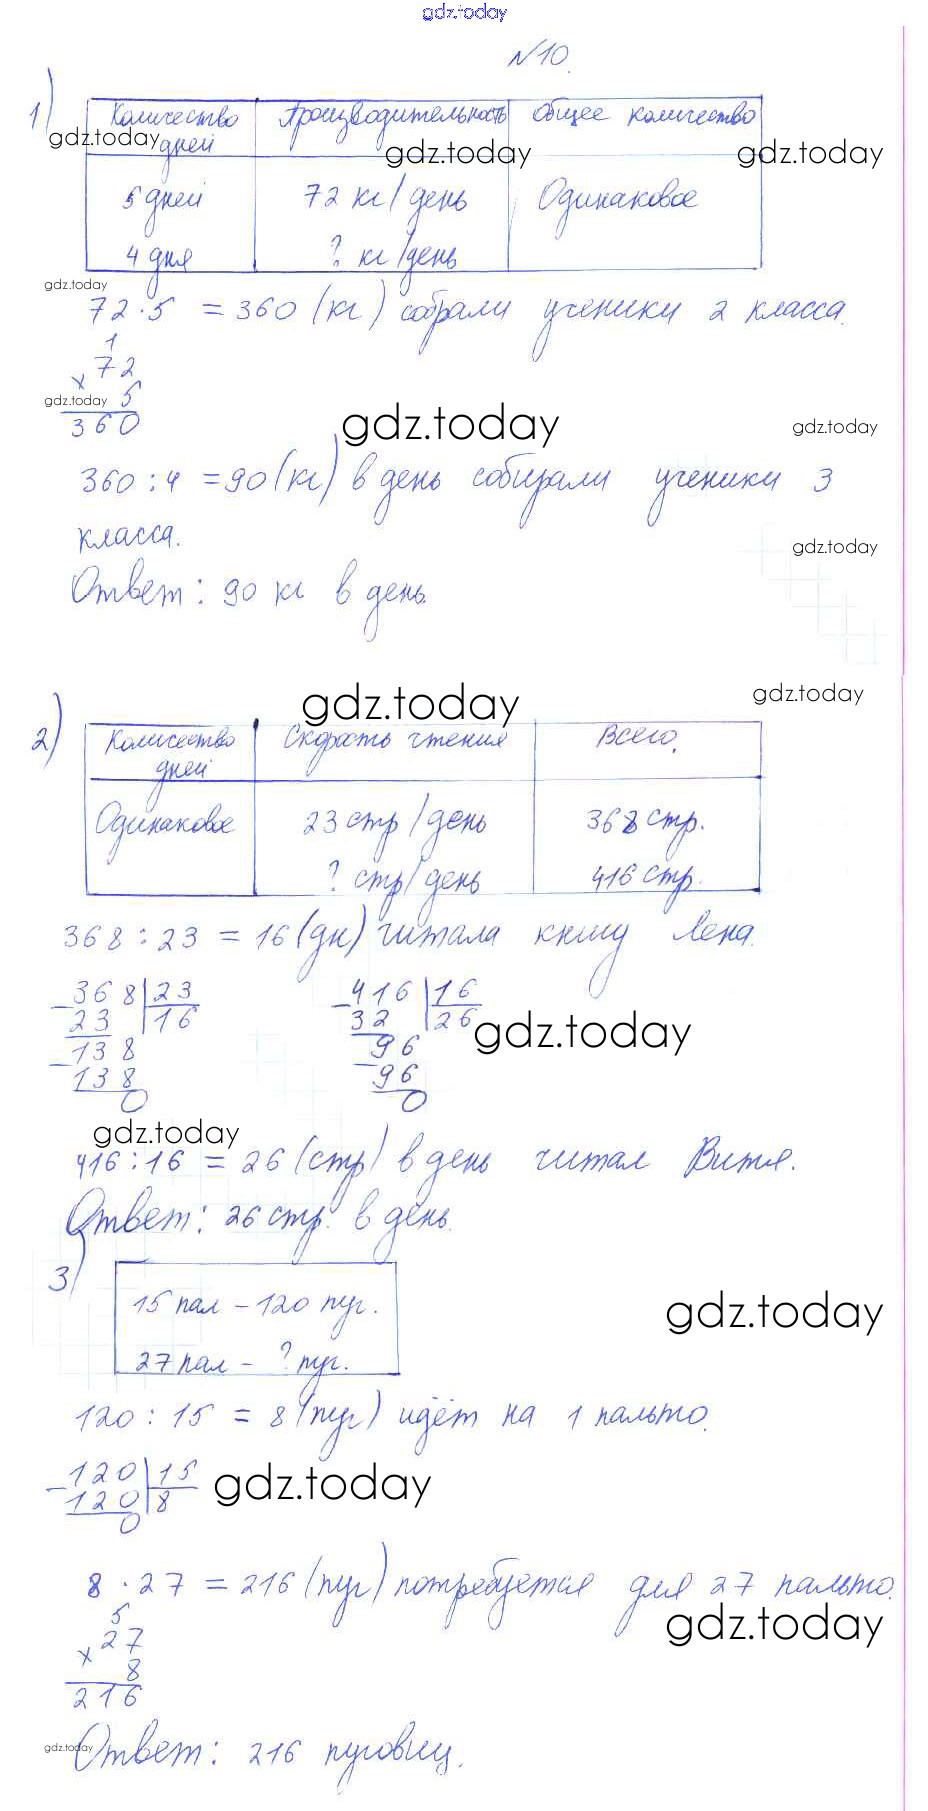 gdz.today
№10.
1)
Количество дней
Производительность
Общее количество
gdz.today
gdz.today
gdz.today
5 дней
72 кг/день
Одинаковое
4 дня
? кг/день
gdz.today
72·5 = 360 (кг) собрали ученики 2 класса.
1
× 72
gdz.today
5
360
gdz.today
gdz.today
360 : 4 = 90 (кг) в день собирали ученики 3
класса.
gdz.today
Ответ: 90 кг в день.
gdz.today
gdz.today
2)
Количество дней
Скорость чтения
Всего.
Одинаковое
23 стр/день
368 стр.
? стр/день
416 стр.
368 : 23 = 16 (дн) читала книгу Лена.
− 368 | 23
23 | 16
− 138
138
0
− 416 | 16
32 | 26
− 96
96
0
gdz.today
gdz.today
416 : 16 = 26 (стр) в день читал Витя.
Ответ: 26 стр. в день.
3)
15 пал – 120 пуг.
27 пал – ? пуг.
gdz.today
120 : 15 = 8 (пуг) идёт на 1 пальто.
− 120 | 15
120 | 8
0
gdz.today
8 · 27 = 216 (пуг) потребуется для 27 пальто.
gdz.today
5
× 27
8
216
gdz.today
Ответ: 216 пуговиц.